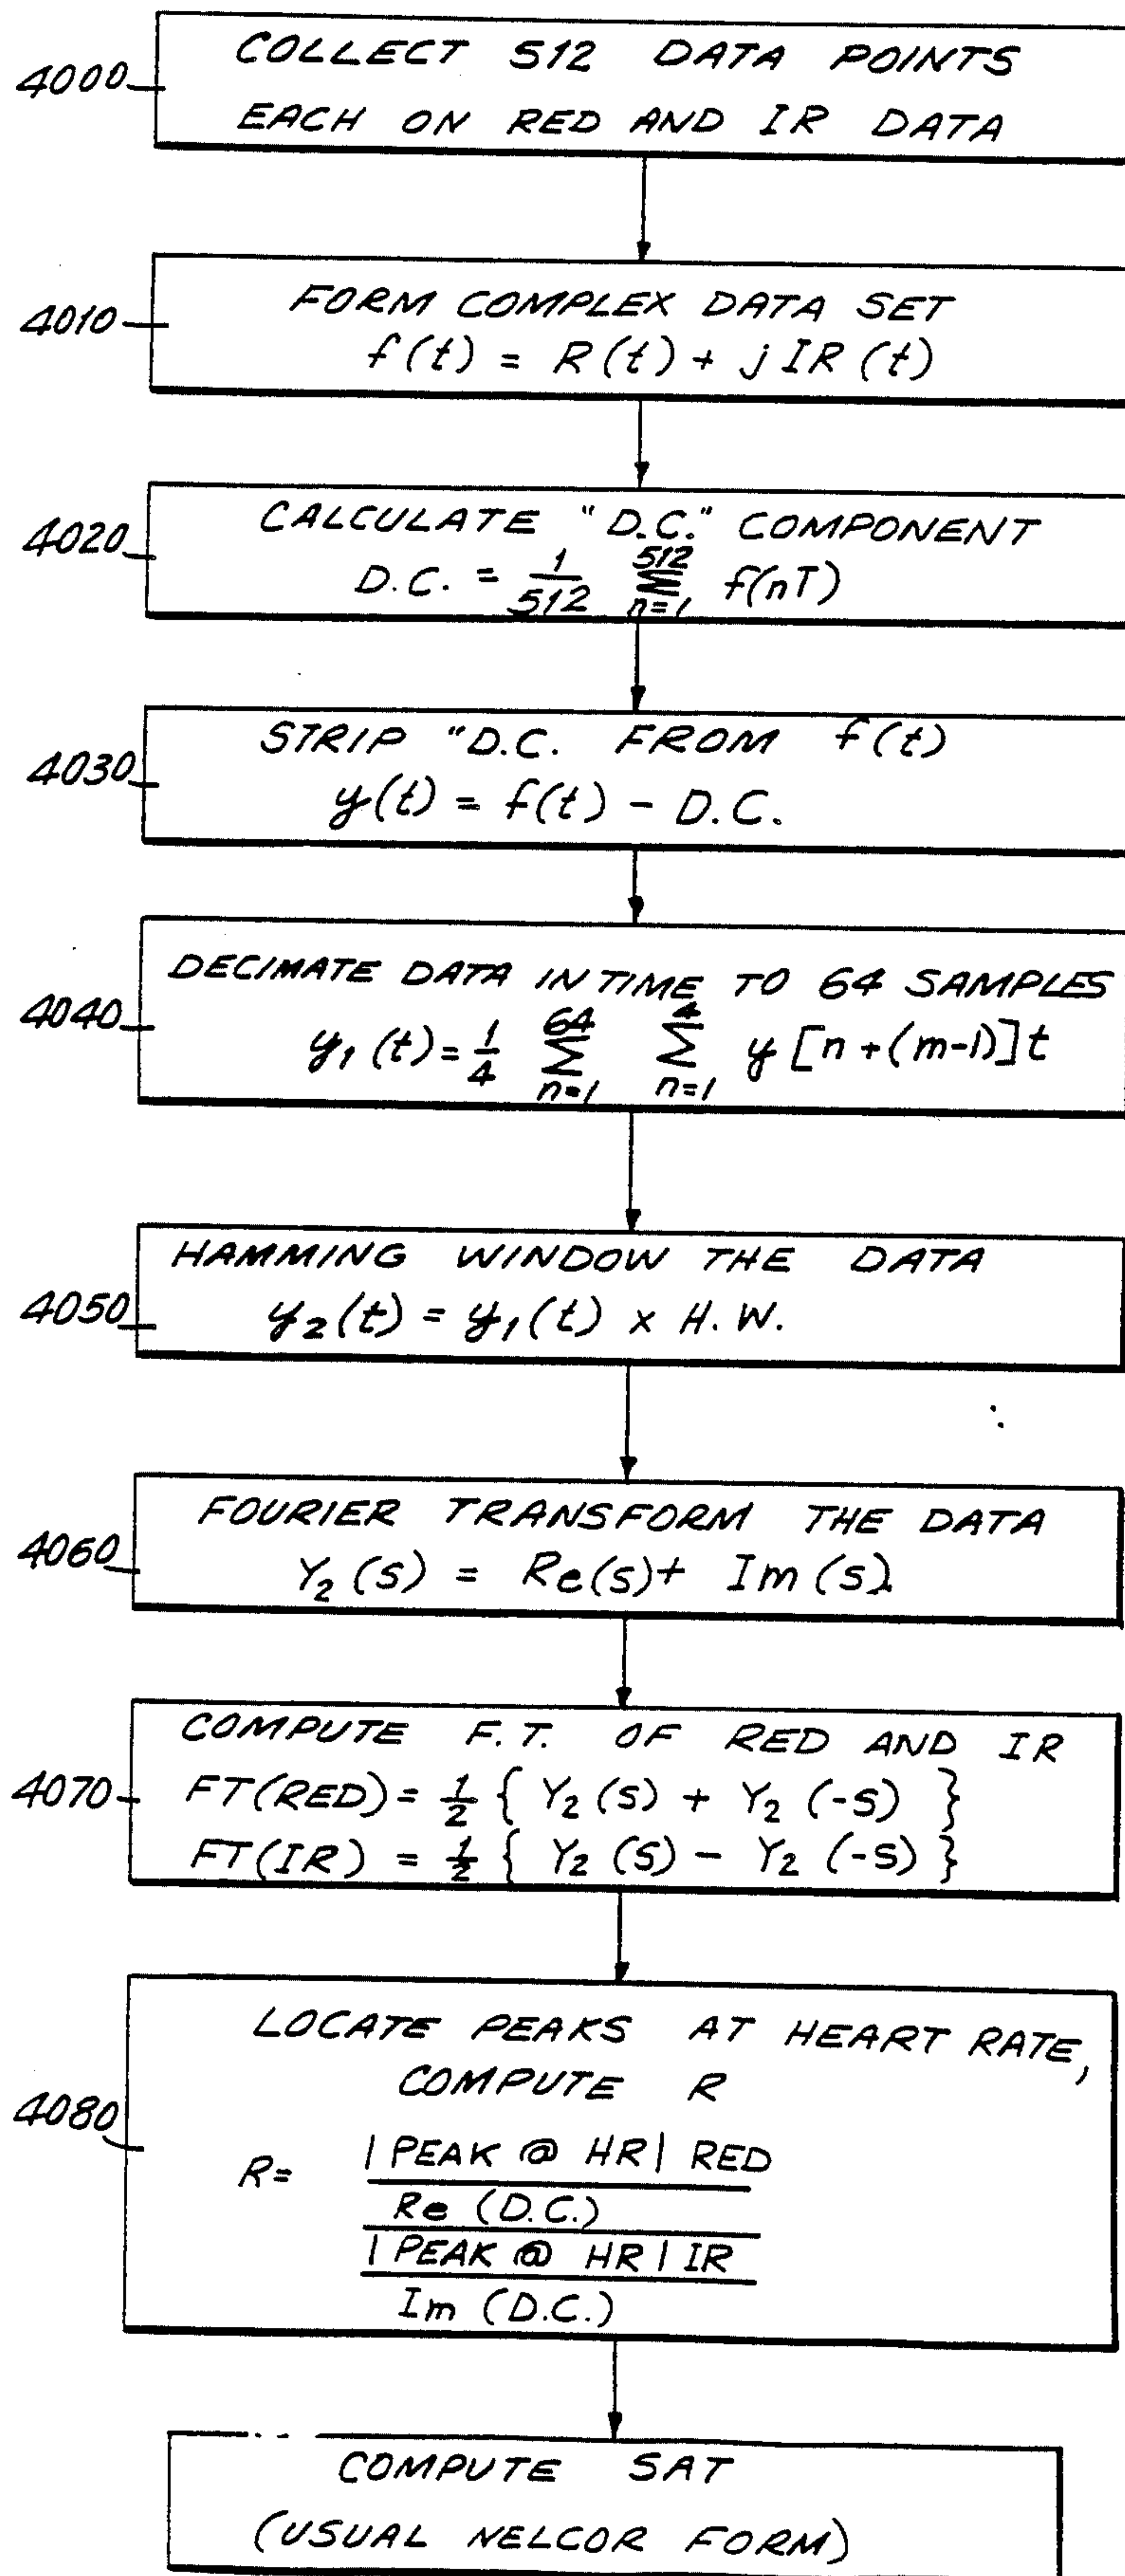 4000
COLLECT 512 DATA POINTS
EACH ON RED AND IR DATA
4010
FORM COMPLEX DATA SET
f(t) = R(t) + j IR (t)
4020
CALCULATE "D.C." COMPONENT
D.C. = 1/512 512 Σ n=1 f(nT)
4030
STRIP "D.C. FROM f(t)
y(t) = f(t) - D.C.
4040
DECIMATE DATA IN TIME TO 64 SAMPLES
y1 (t) = 1/4 64 Σ n=1 4 Σ n=1 y [n + (m-1)] t
4050
HAMMING WINDOW THE DATA
y2(t) = y1(t) x H.W.
4060
FOURIER TRANSFORM THE DATA
Y2 (s) = Re(s) + Im (s)
4070
COMPUTE F.T. OF RED AND IR
FT(RED) = 1/2 { Y2 (s) + Y2 (-s) }
FT(IR) = 1/2 { Y2 (s) - Y2 (-s) }
4080
LOCATE PEAKS AT HEART RATE,
COMPUTE R
R=
| PEAK @ HR | RED
Re (D.C.)
| PEAK @ HR | IR
Im (D.C.)
COMPUTE SAT
(USUAL NELCOR FORM)